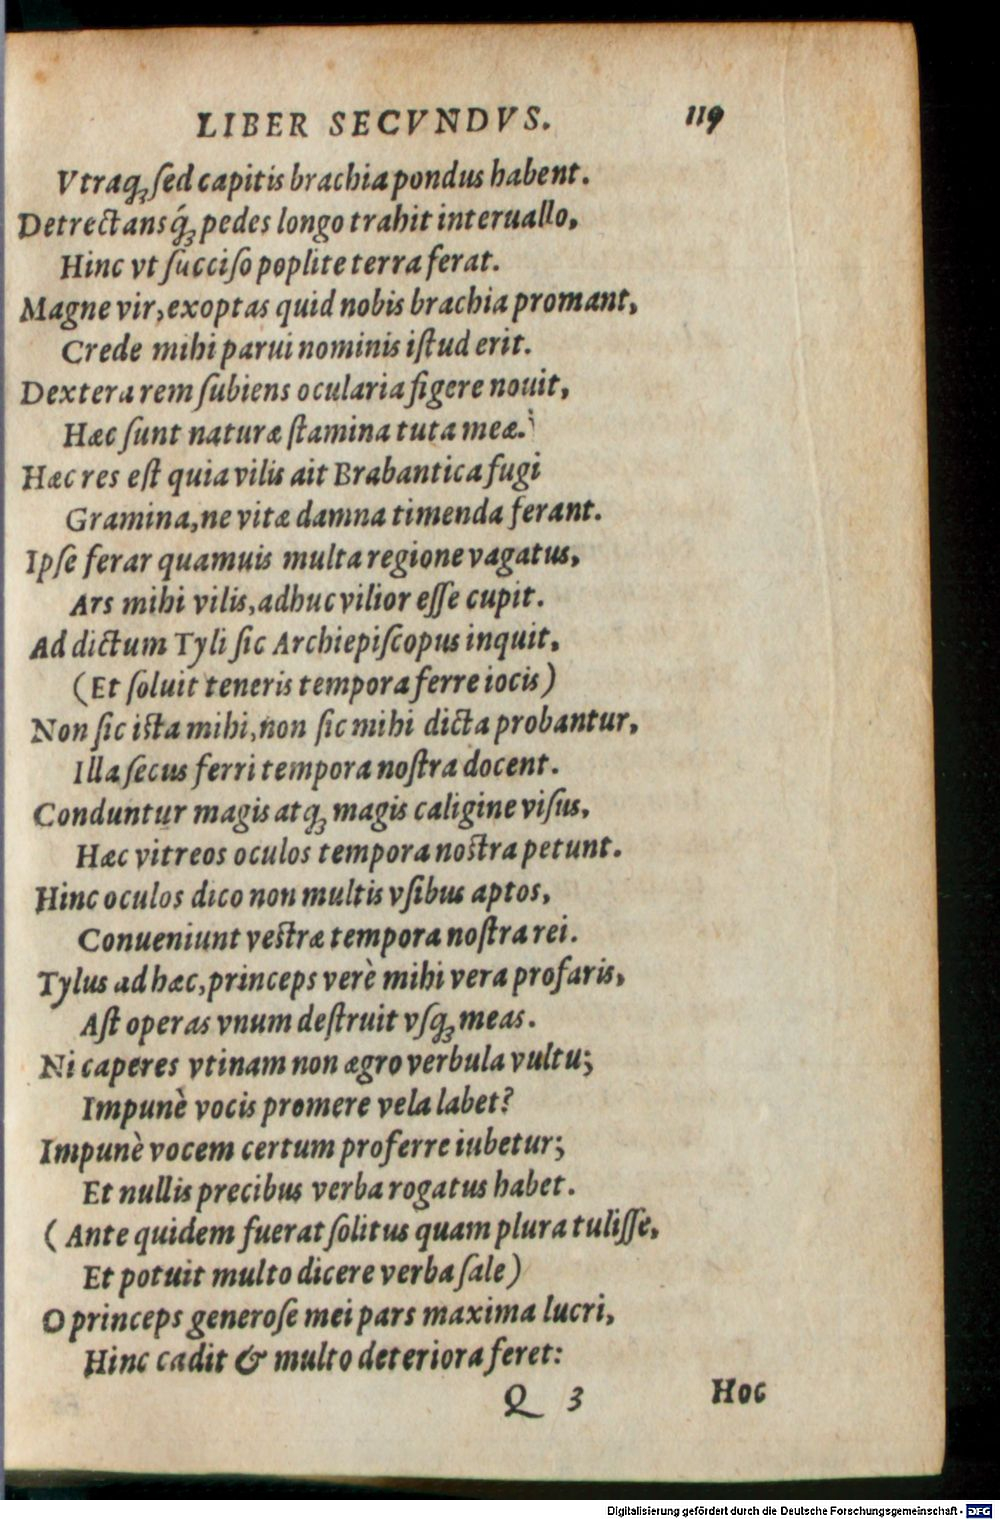 LIBER SECVNDVS. 119
Vtraq́ꝫ ſed capitis brachia pondus habent.
Detrectansq́ꝫ pedes longo trahit interuallo,
Hinc vt ſucciſo poplite terra ferat.
Magne vir, exoptas quid nobis brachia promant,
Crede mihi parui nominis iſtud erit.
Dextera rem ſubiens ocularia figere nouit,
Hæc ſunt naturæ ſtamina tuta meæ.
Hæc res eſt quia vilis ait Brabantica fugi
Gramina, ne vitæ damna timenda ferant.
Ipſe ferar quamuis multa regione vagatus,
Ars mihi vilis, adhuc vilior eſſe cupit.
Ad dictum Tyli ſic Archiepiſcopus inquit,
(Et ſoluit teneris tempora ferre iocis)
Non ſic iſta mihi, non ſic mihi dicta probantur,
Illa ſecus ferri tempora noſtra docent.
Conduntur magis atqꝫ magis caligine viſus,
Hæc vitreos oculos tempora noſtra petunt.
Hinc oculos dico non multis vſibus aptos,
Conueniunt veſtræ tempora noſtra rei.
Tylus ad hæc, princeps verè mihi vera profaris,
Aſt operas vnum deſtruit vſqꝫ meas.
Ni caperes vtinam non ægro verbula vultu;
Impunè vocis promere vela labet?
Impunè vocem certum proferre iubetur;
Et nullis precibus verba rogatus habet.
(Ante quidem fuerat ſolitus quam plura tuliſſe,
Et potuit multo dicere verba ſale)
O princeps generoſe mei pars maxima lucri,
Hinc cadit & multo deteriora feret:
Q 3 Hoc
Digitalisierung gefördert durch die Deutsche Forschungsgemeinschaft - DFG